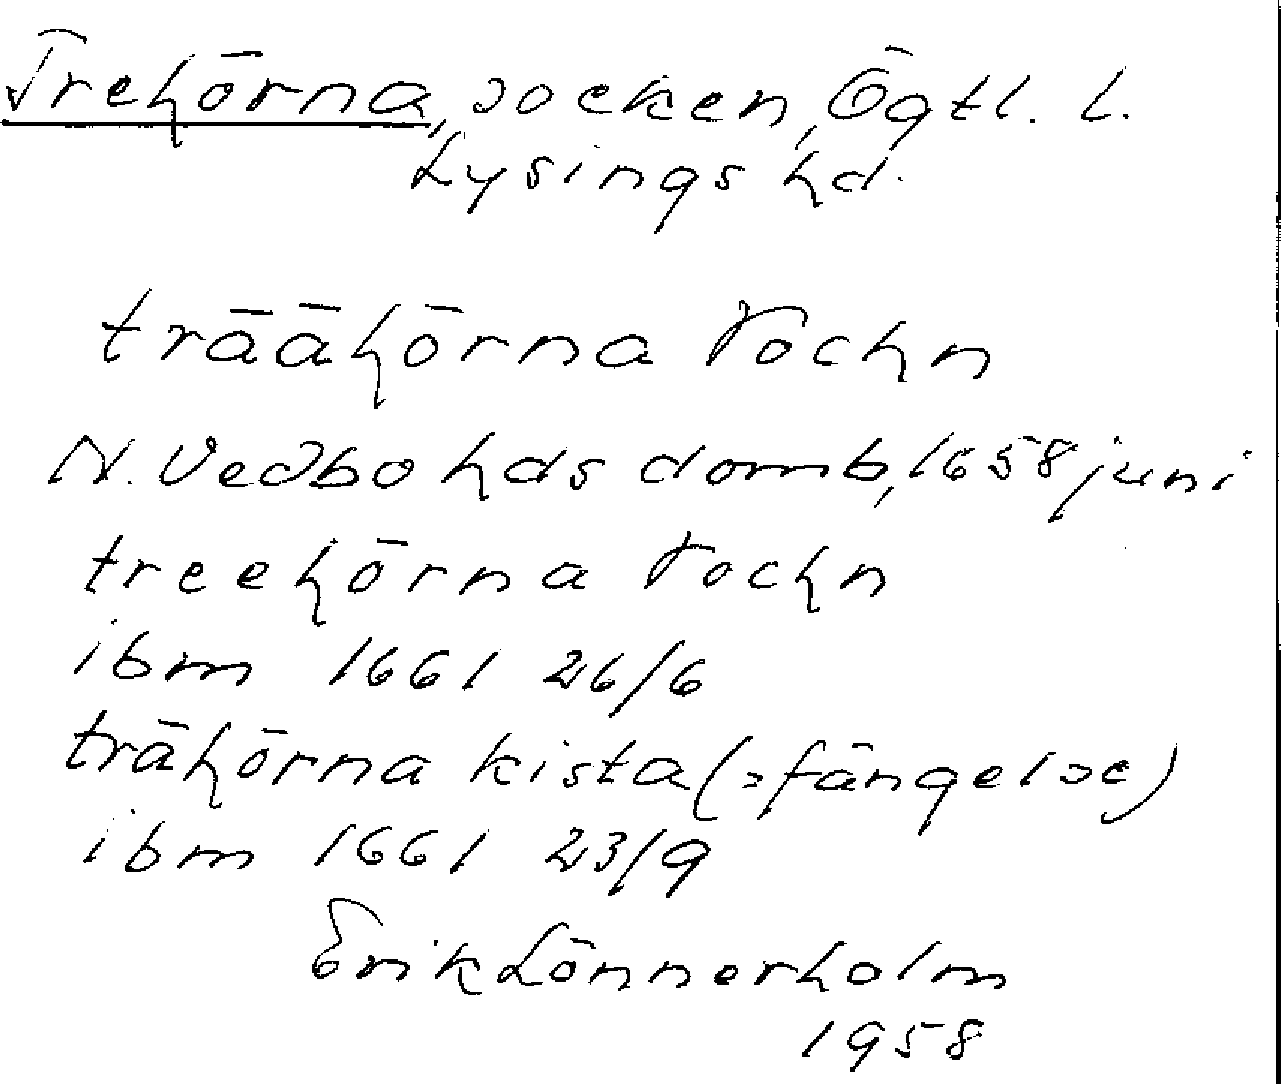 Trehörna, socken, Ögtl. l.
Lysings hd.
träähörna Sochn
N. Vedbo hds domb, 1658 juni
treehörna Sochn
ibm 1661 26/6
trähörna kista (= fängelse)
ibm 1661 23/9
Erik Lönnerholm
1958